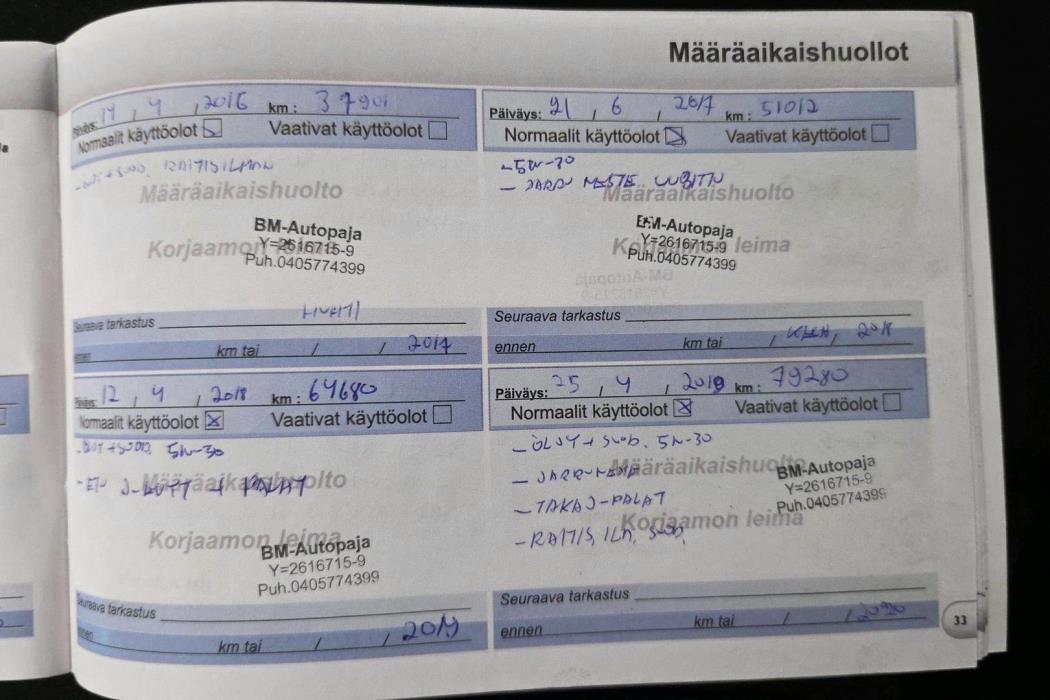 Määräaikaishuollot
Päiväys: 14 , 4 , 2016 km : 37901
Normaalit käyttöolot Vaativat käyttöolot
RAITISILMAN
Määräaikaishuolto
Korjaamon leima
BM-Autopaja
Y=2616715-9
Puh.0405774399
Seuraava tarkastus
ennen km tai / / 2017
Päiväys: 21 , 6 , 2017 km : 51012
Normaalit käyttöolot Vaativat käyttöolot
-5W-30
- JARRU NESTE UUSITTU
Määräaikaishuolto
Korjaamon leima
BM-Autopaja
Y=2616715-9
Puh.0405774399
Seuraava tarkastus
ennen km tai / , 2018
Päiväys: 12 , 4 , 2018 km : 64680
Normaalit käyttöolot Vaativat käyttöolot
5W-30
PALAT
Määräaikaishuolto
Korjaamon leima
BM-Autopaja
Y=2616715-9
Puh.0405774399
Seuraava tarkastus
ennen km tai / , 2019
Päiväys: 25 , 4 , 2019 km : 79280
Normaalit käyttöolot Vaativat käyttöolot
- ÖLJY + SUOD. 5W-30
- JARRUNESTE
- TAKA J-PALAT
- RAITIS. ILM. SUOD.
Määräaikaishuolto
Korjaamon leima
BM-Autopaja
Y=2616715-9
Puh.0405774399
Seuraava tarkastus
ennen km tai / / 2020
33